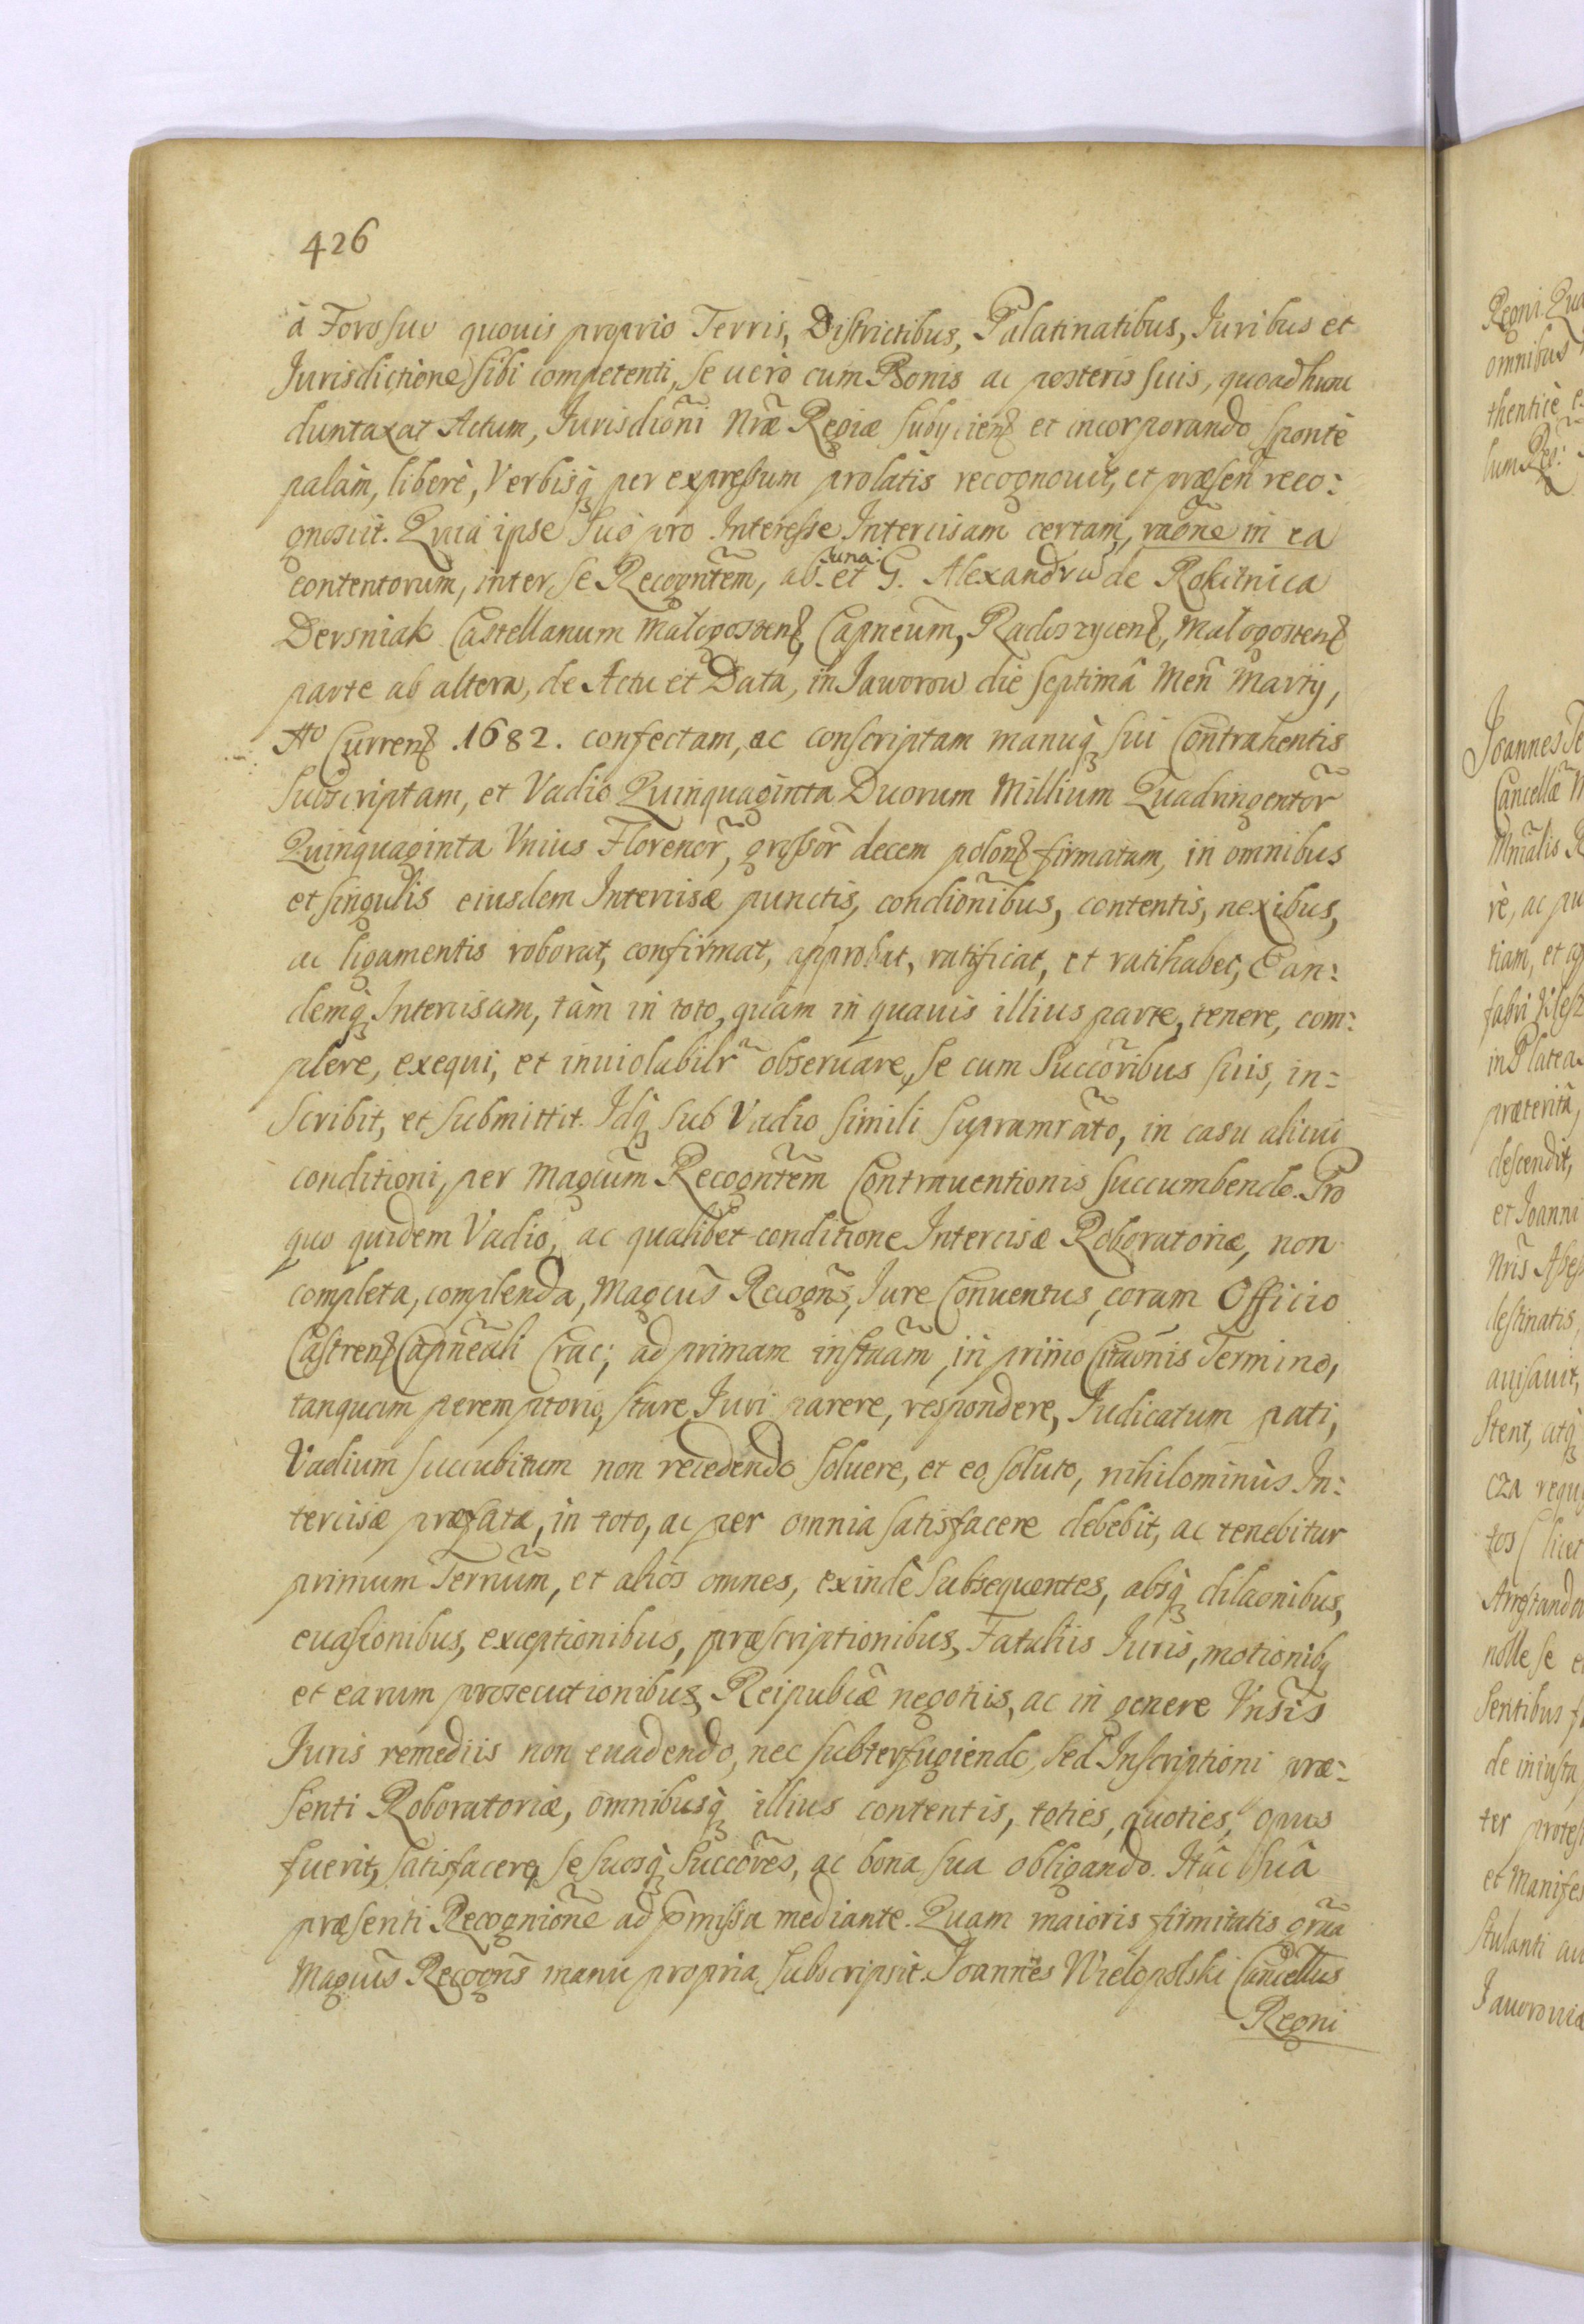 426
à Foro suo quouis proprio Terris, Districtibus, Palatinatibus, Iuribus et
Jurisdictione sibi competenti, se uerò cum Bonis ac posteris suis, quoad hunc
duntaxat Actum, Jurisdioñi Nr̃æ Regiæ subyciens et incorporando sponte
palàm, liberè, Verbisq; per expressum prolatis recognouit, et præseñ reco:
gnoscit. Quia ipse suo pro Interesse Intercisam certam, rãone in ea
contentorum, inter se Recogñtem, ab una: et G. Alexandrũ de Rokitnica
Dersniak Castellanum Małogostens, Capneum̃, Radoszycens, Małogostens
parte ab altera, de Actu et Data, in Jaworow die septimâ Meñ Martij,
Aº Currens 1682. confectam, ac conscriptam manuq; sui Contrahentis
subscriptam, et Vadio Quinquaginta Duorum Millium Quadringentor̃
Quinquaginta Vnius Florenor̃, grossor̃ decem polons firmatam, in omnibus
et singulis eiusdem Intercisæ punctis, condionibus, contentis, nexibus,
ac ligamentis roborat, confirmat, approbat, ratificat, et ratihabet, Ean:
demq; Intercisam, tàm in toto, quàm in quauis illius parte, tenere, com:
plere, exequi, et inuiolabilr̃ obseruare, se cum Succor̃ibus suis, in:
scribit, et submittit. Idq; sub Vadio simili supramrãto, in casu alicui
conditioni, per Magcum̃ Recogñtem Contrauentionis succumbendo. Pro
quo quidem Vadio, ac qualibet conditione Intercisæ Roboratoriæ, non
completa, complenda, Magcus̃ Recogñs, Jure Conuentus, coram Officio
Castrens Capneãli Crac; ad primam instãam, in primo Citaõnis Termino,
tanquam peremptorio, stare, Juri parere, respondere, Iudicatum pati,
Vadium succubitum non recedendo soluere, et eo soluto, nihilominùs In:
tercisæ præfatæ, in toto, ac per omnia satisfacere debebit, ac tenebitur
primum Ternum̃, et alios omnes, exindè subsequentes, absq; dilaonibus,
euasionibus, exceptionibus, præscriptionibus, Fataliis Iuris, motionibq
et earum prosecutionibus, Reipubcæ negotiis, ac in genere Vnsis̃
Juris remediis non euadendo, nec subterfugiendo, sed Inscriptioni præ:
senti Roboratoriæ, omnibusq; illius contentis, toties, quoties, opus
fuerit, satisfacere, se suosq; Succor̃es, ac bona sua obligando. Hâc suâ
præsenti Recognioñe ad p̃missa mediante. Quam maioris firmitatis grãa
Magcus̃ Recogñs manu propria subscripsit. Joannes Wielopolski Cancellus
Regni